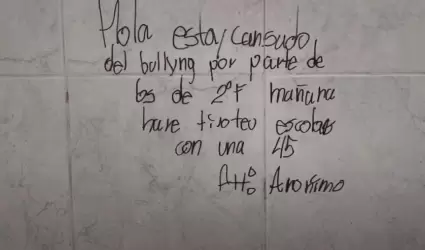 Hola estoy cansado
del bullyng por parte de
los de 2ºF mañana
hare tiroteo escolar
con una 45
Att: Anonimo